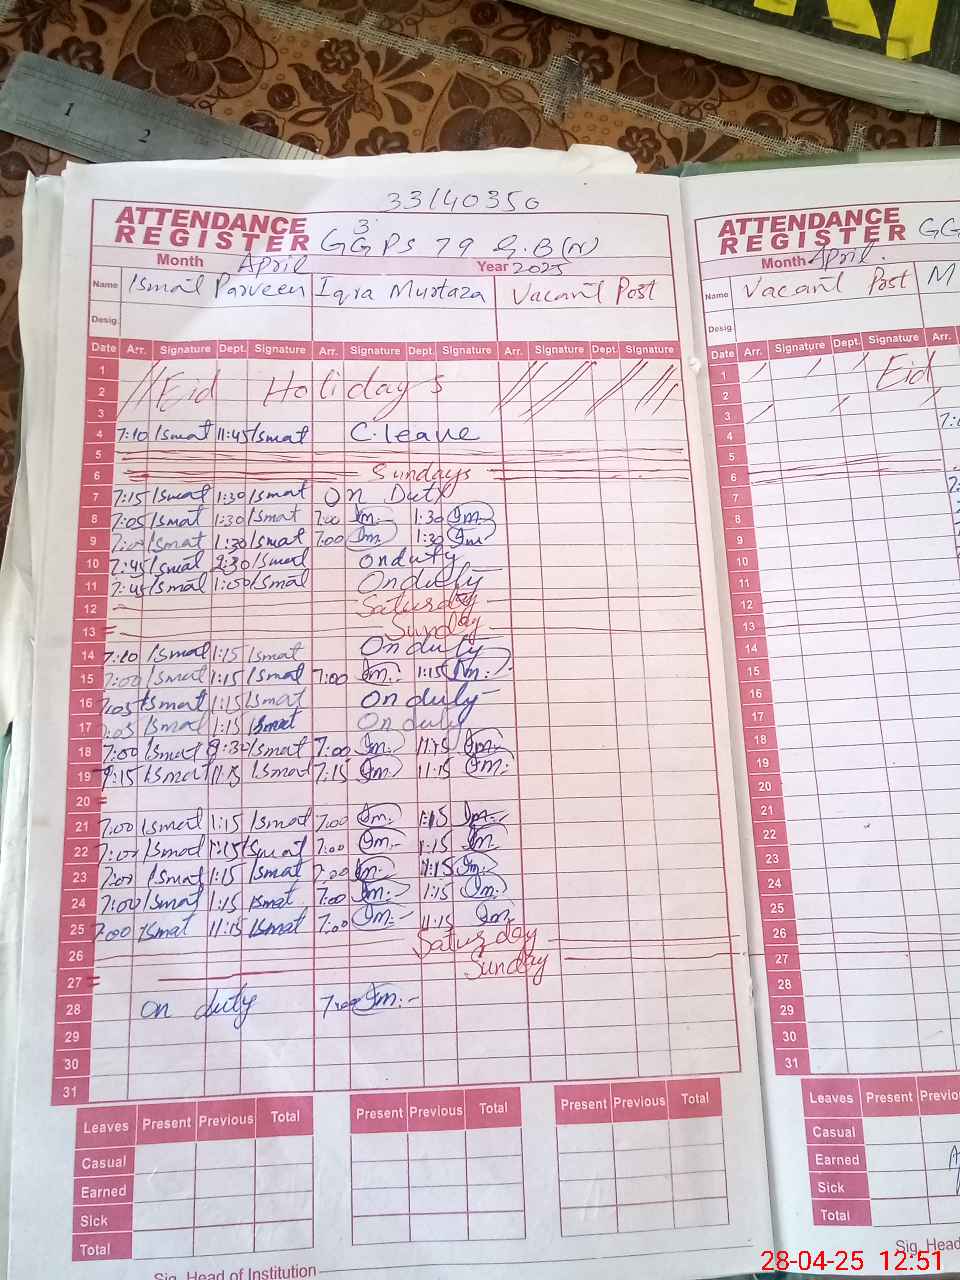 1 2
33140350
ATTENDANCE REGISTER GGPS 79 G.B(N)
3
Month April Year 2025
Name Ismat Parveen Iqra Murtaza Vacant Post
Desig.
Date Arr. Signature Dept. Signature Arr. Signature Dept. Signature Arr. Signature Dept. Signature
1
2 Eid Holidays
3
4 7:10 Ismat 11:45 Ismat C.leave
5
6 Sundays
7 7:15 Ismat 1:30 Ismat On Duty
8 7:05 Ismat 1:30 Ismat 7:00 Im. 1:30 Im.
9 7:00 Ismat 1:30 Ismat 7:00 Im. 1:30 Im
10 7:45 Ismat 2:30 Ismat onduty
11 7:45 Ismat 1:00 Ismat Onduty
12 Saturday
13 Sunday
14 7:10 Ismat 1:15 Ismat Onduty
15 7:00 Ismat 1:15 Ismat 7:00 Im. 1:15 Im.
16 7:05 Ismat 1:15 Ismat On duty
17 7:05 Ismat 1:15 Ismat On duty
18 7:00 Ismat Ismat 7:00 Im. 11:15 Im.
19 Ismat 11:15 Ismat 7:15 Im. 11:15 Im.
20
21 7:00 Ismat 1:15 Ismat 7:00 Im. 1:15 Im.
22 7:00 Ismat 1:15 Ismat 7:00 Im. 1:15 Im
23 7:00 Ismat 1:15 Ismat 7:00 Im. 1:15 Im.
24 7:00 Ismat 1:15 Ismat 7:00 Im. 1:15 Im.
25 7:00 Ismat 11:15 Ismat 7:00 Im. 11:15 Im.
26 Saturday
27 Sunday
28 on duty 7:00 Im.
29
30
31
Leaves Present Previous Total Present Previous Total Present Previous Total
Casual
Earned
Sick
Total
Sig. Head of Institution
ATTENDANCE REGISTER GG
Month April.
Name Vacant Post M
Desig.
Date Arr. Signature Dept. Signature Arr.
1 Eid
2
3
4
5
6
7
8
9
10
11
12
13
14
15
16
17
18
19
20
21
22
23
24
25
26
27
28
29
30
31
Leaves Present Previo
Casual
Earned
Sick
Total
Sig. Head
28-04-25 12:51